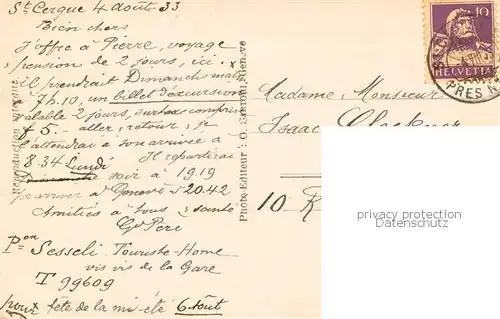 St Cergue 4 août 33
Bien chers
J'offre à Pierre, voyage
pension de 2 jours, ici.
il prendrait Dimanche matin
7h.10, un billet d'excursion
valable 2 jours, surtax comprise
f 5.- aller, retour; je
l'attendrai à son arrivée à
8.34 Lundi Il repartirai
Dimanche soir à 19.19
pr arriver à Genève 20.42
Amitiés à tous & santé
Gd Père
Pon Sesseli Touriste-Home
vis vis de la Gare
T 99609
pour fête de la mi-été 6 Août
Reproduction
Photo-Editeur: O. Genève
10
HELVETIA
PRES N
Madame, Monsieur
Isaac
10 R
privacy protection
Privatsphäre Datenschutz